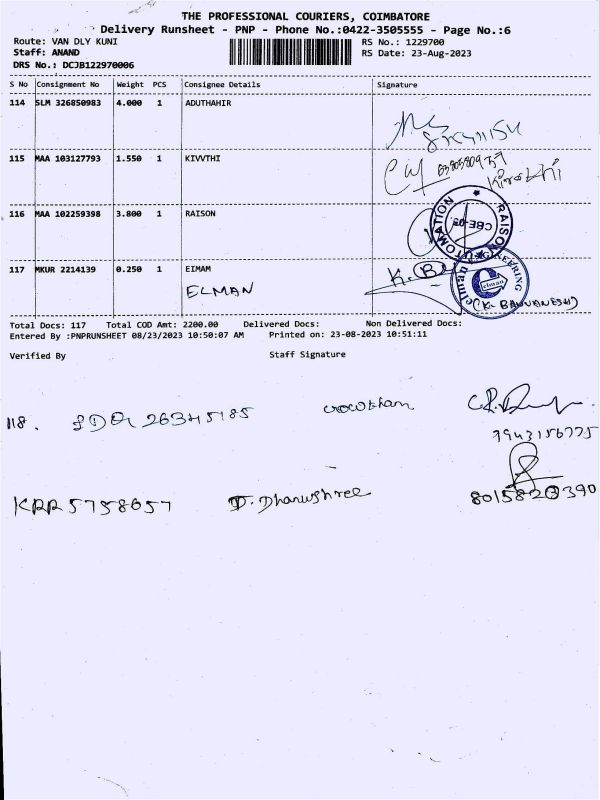 THE PROFESSIONAL COURIERS, COIMBATORE
Delivery Runsheet - PNP - Phone No.:0422-3505555 - Page No.:6
Route: VAN DLY KUNI RS No.: 1229700
Staff: ANAND RS Date: 23-Aug-2023
DRS No.: DCJB122970006
S No Consignment No Weight PCS Consignee Details Signature
114 SLM 326850983 4.000 1 ADUTHAHIR
115 MAA 103127793 1.550 1 KIVVTHI
116 MAA 102259398 3.800 1 RAISON
117 MKUR 2214139 0.250 1 EIMAM
ELMAN
Total Docs: 117 Total COD Amt: 2200.00 Delivered Docs: Non Delivered Docs:
Entered By :PNPRUNSHEET 08/23/2023 10:50:07 AM Printed on: 23-08-2023 10:51:11
Verified By Staff Signature
118.
7943156775
KRR 5758657 D. Dhanushree